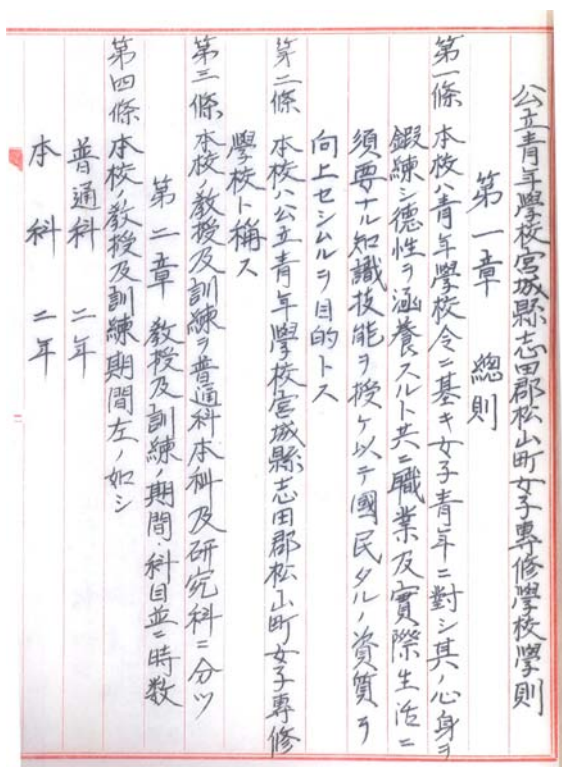 公立青年學校宮城縣志田郡松山町女子專修學校學則
第一章 總則
第一條 本校ハ青年學校令ニ基キ女子青年ニ對シ其ノ心身ヲ
鍜練シ德性ヲ涵養スルト共ニ職業及實際生活ニ
須要ナル知識技能ヲ授ケ以テ國民タルノ資質ヲ
向上セシムルヲ目的トス
第二條 本校ハ公立青年學校宮城縣志田郡松山町女子專修
學校ト稱ス
第三條 本校ノ教授及訓練ヲ普通科本科及研究科ニ分ツ
第二章 教授及訓練ノ期間·科目並ニ時数
第四條 本校ノ教授及訓練期間左ノ如シ
普通科 二年
本科 二年